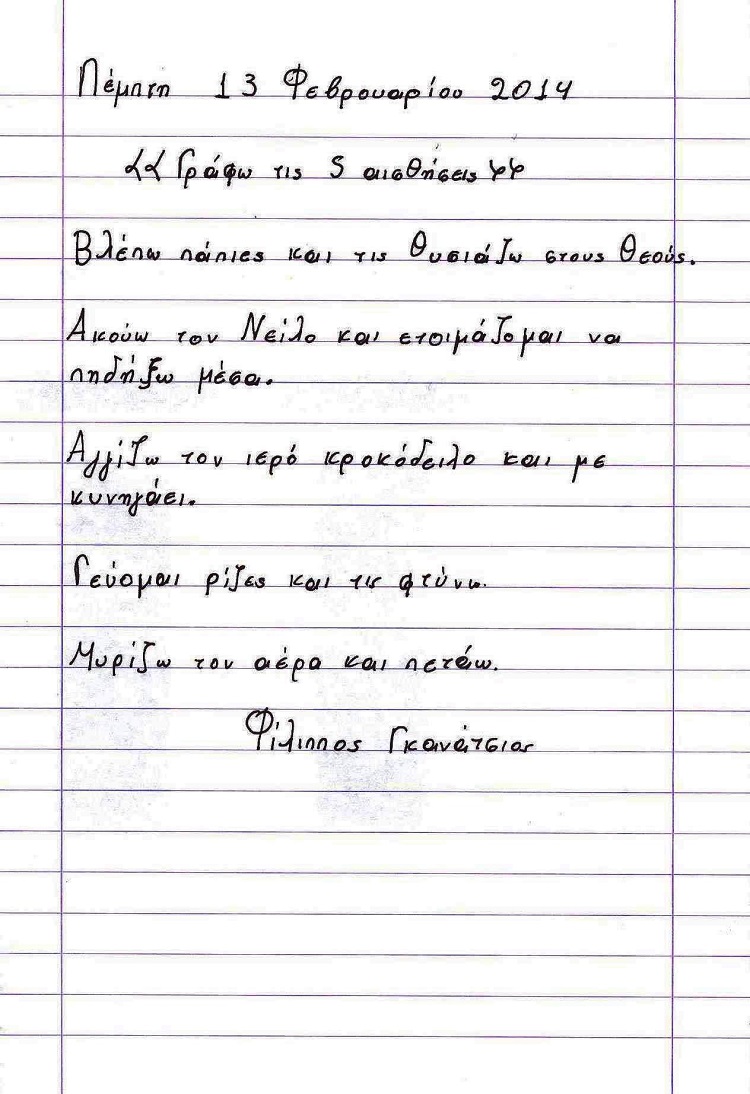 Πέμπτη 13 Φεβρουαρίου 2014
«Γράφω τις 5 αισθήσεις»
Βλέπω πάπιες και τις θυσιάζω στους Θεούς.
Ακούω τον Νείλο και ετοιμάζομαι να
πηδήξω μέσα.
Αγγίζω τον ιερό κροκόδειλο και με
κυνηγάει.
Γεύομαι ρίζες και τις φτύνω.
Μυρίζω τον αέρα και πετάω.
Φίλιππος Γκανάτσιος